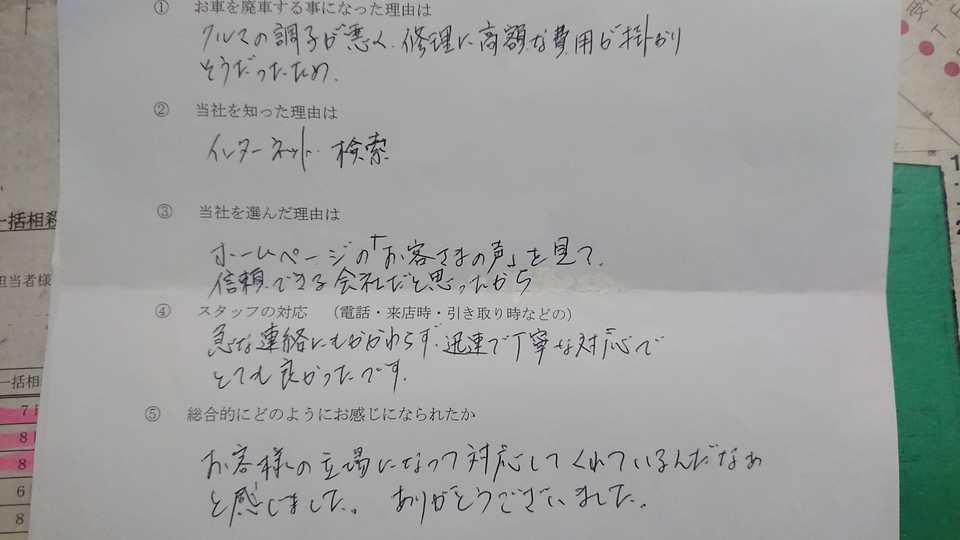 ① お車を廃車する事になった理由は
クルマの調子が悪く、修理に高額な費用が掛かり
そうだったため、
② 当社を知った理由は
インターネット検索
③ 当社を選んだ理由は
ホームページの「お客さまの声」を見て、
信頼できる会社だと思ったから
④ スタッフの対応 （電話・来店時・引き取り時などの）
急な連絡にもかかわらず、迅速で丁寧な対応で
とても良かったです。
⑤ 総合的にどのようにお感じになられたか
お客様の立場になって対応してくれているんだなぁ
と感じました。 ありがとうございました。
一括相殺
担当者様
一括相
7
8
8
6
8